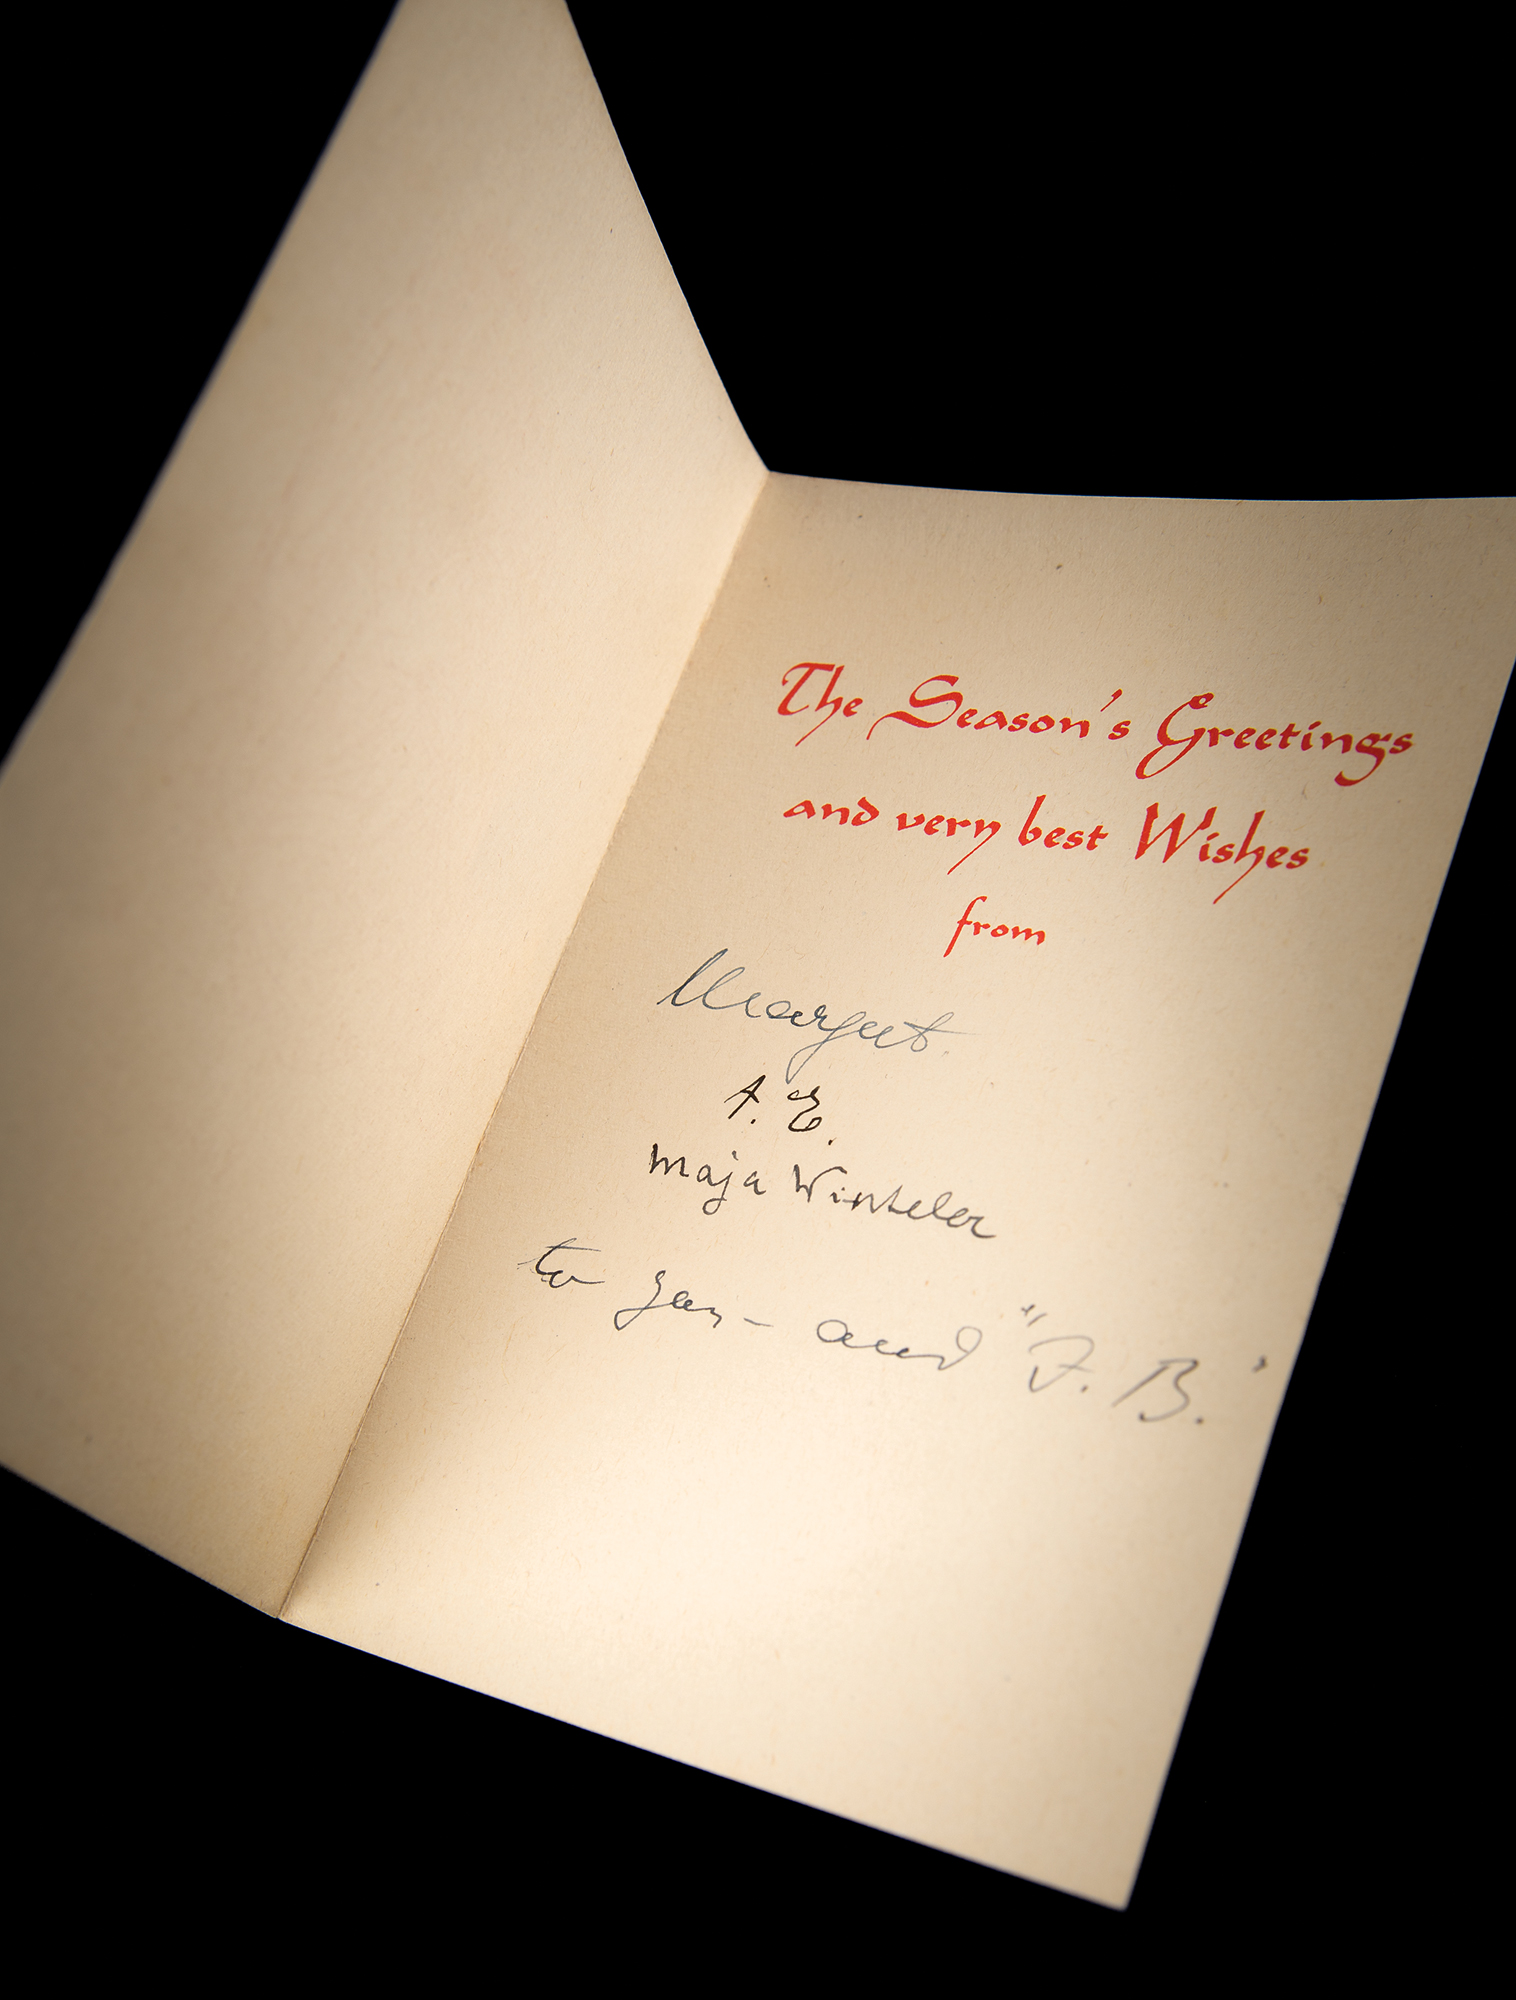 The Season's Greetings
and very best Wishes
from
Margot
A. E.
Maja Winteler
to Jan - and "F. B."